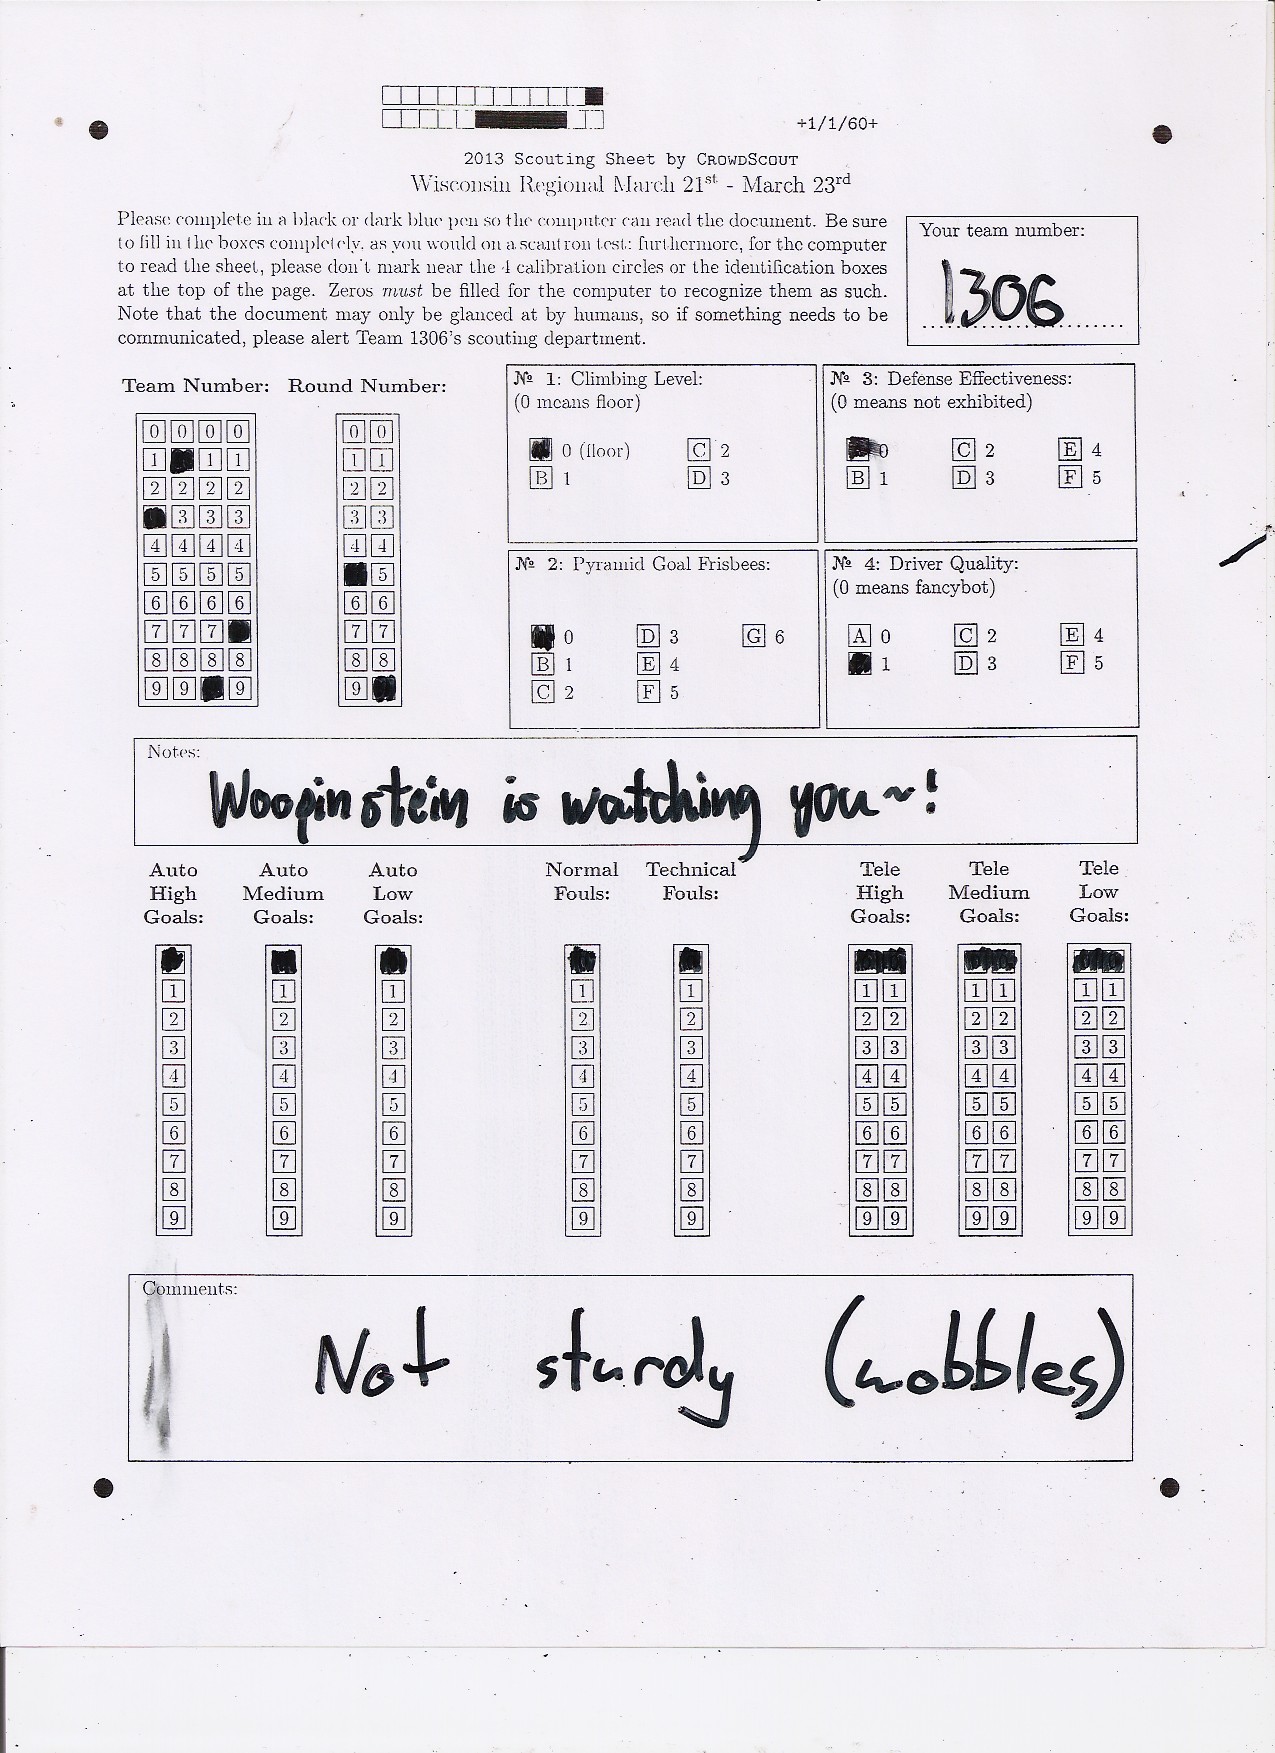 +1/1/60+
2013 Scouting Sheet by CROWDSCOUT
Wisconsin Regional March 21st - March 23rd
Please complete in a black or dark blue pen so the computer can read the document. Be sure
to fill in the boxes completely, as you would on a scantron test; furthermore, for the computer
to read the sheet, please don't mark near the 4 calibration circles or the identification boxes
at the top of the page. Zeros must be filled for the computer to recognize them as such.
Note that the document may only be glanced at by humans, so if something needs to be
communicated, please alert Team 1306's scouting department.
Your team number:
1306
Team Number: Round Number:
0 0 0 0 0 0
1 1 1 1 1
2 2 2 2 2 2
3 3 3 3 3
4 4 4 4 4 4
5 5 5 5 5
6 6 6 6 6 6
7 7 7 7 7
8 8 8 8 8 8
9 9 9 9
№ 1: Climbing Level:
(0 means floor)
0 (floor) C 2
B 1 D 3
№ 3: Defense Effectiveness:
(0 means not exhibited)
0 C 2 E 4
B 1 D 3 F 5
№ 2: Pyramid Goal Frisbees:
0 D 3 G 6
B 1 E 4
C 2 F 5
№ 4: Driver Quality:
(0 means fancybot)
A 0 C 2 E 4
1 D 3 F 5
Notes:
Woopinstein is watching you~!
Auto Auto Auto Normal Technical Tele Tele Tele
High Medium Low Fouls: Fouls: High Medium Low
Goals: Goals: Goals: Goals: Goals: Goals:
1 1 1 1 1 1 1 1 1 1 1
2 2 2 2 2 2 2 2 2 2 2
3 3 3 3 3 3 3 3 3 3 3
4 4 4 4 4 4 4 4 4 4 4
5 5 5 5 5 5 5 5 5 5 5
6 6 6 6 6 6 6 6 6 6 6
7 7 7 7 7 7 7 7 7 7 7
8 8 8 8 8 8 8 8 8 8 8
9 9 9 9 9 9 9 9 9 9 9
Comments:
Not sturdy (wobbles)